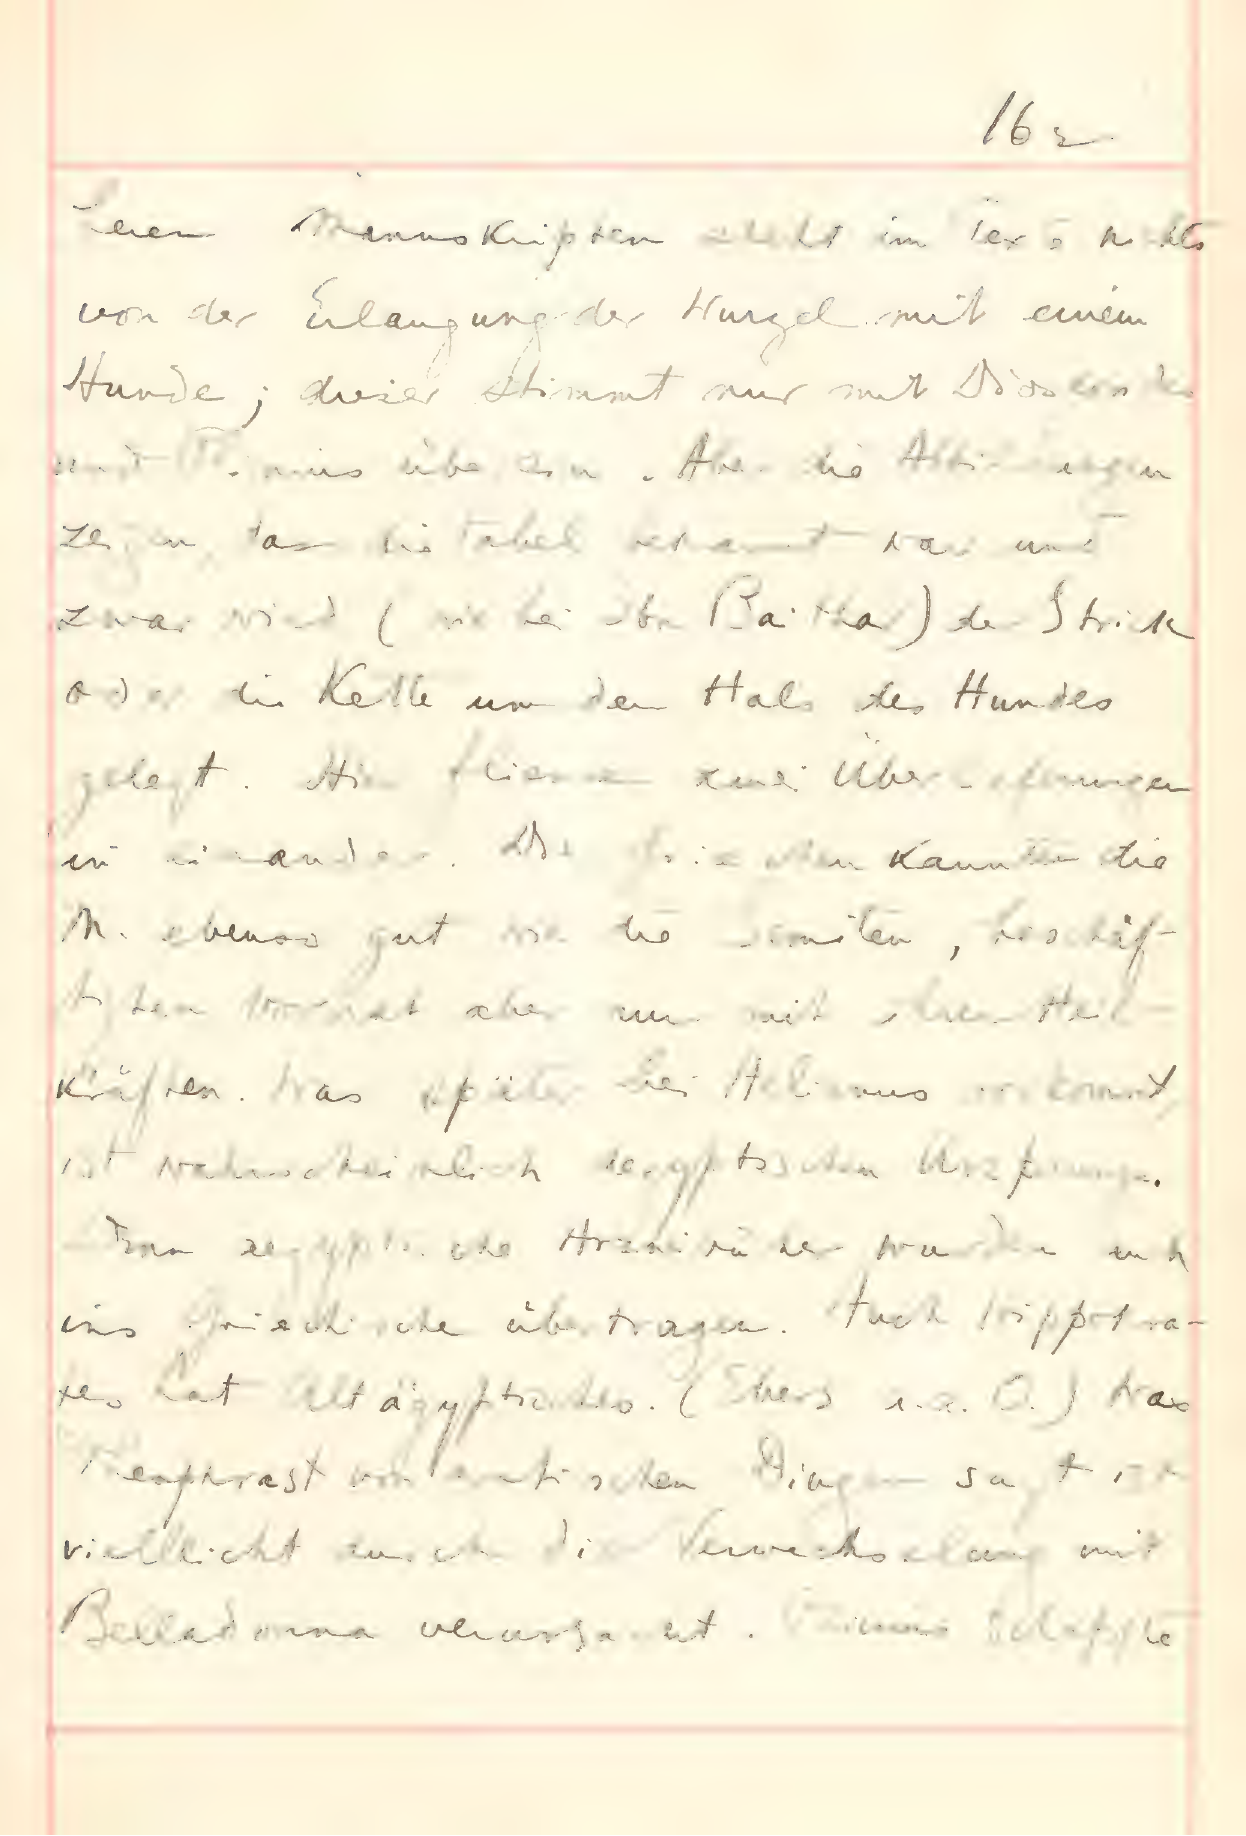 162
Manuskripten steht im Text nichts
von der Erlangung der Wurzel mit einem
Hunde; dieser stimmt nur mit Dioscorides
und Plinius überein. Aber die Abbildungen
zeigen, dass die Fabel bekannt war und
zwar wird (wie bei Ibn Baithar) der Strick
oder die Kette um den Hals des Hundes
gelegt. Hier fliessen zwei Überlieferungen
in einander. Die Griechen kannten die
M. ebenso gut wie die Semiten, beschäf-
tigten aber nur mit ihren Heil-
kräften. Was später bei Aelianus vorkommt,
ist wahrscheinlich aegyptischen Ursprungs.
Denn aegyptische Arzneibücher wurden auch
ins Griechische übertragen. Auch Hippokra-
tes hat Altägyptisches. (Ebers u.a. O.) Was
Theophrast von erotischen Dingen sagt ist
vielleicht durch die Verwechselung mit
Belladonna verursacht. Plinius schöpfte